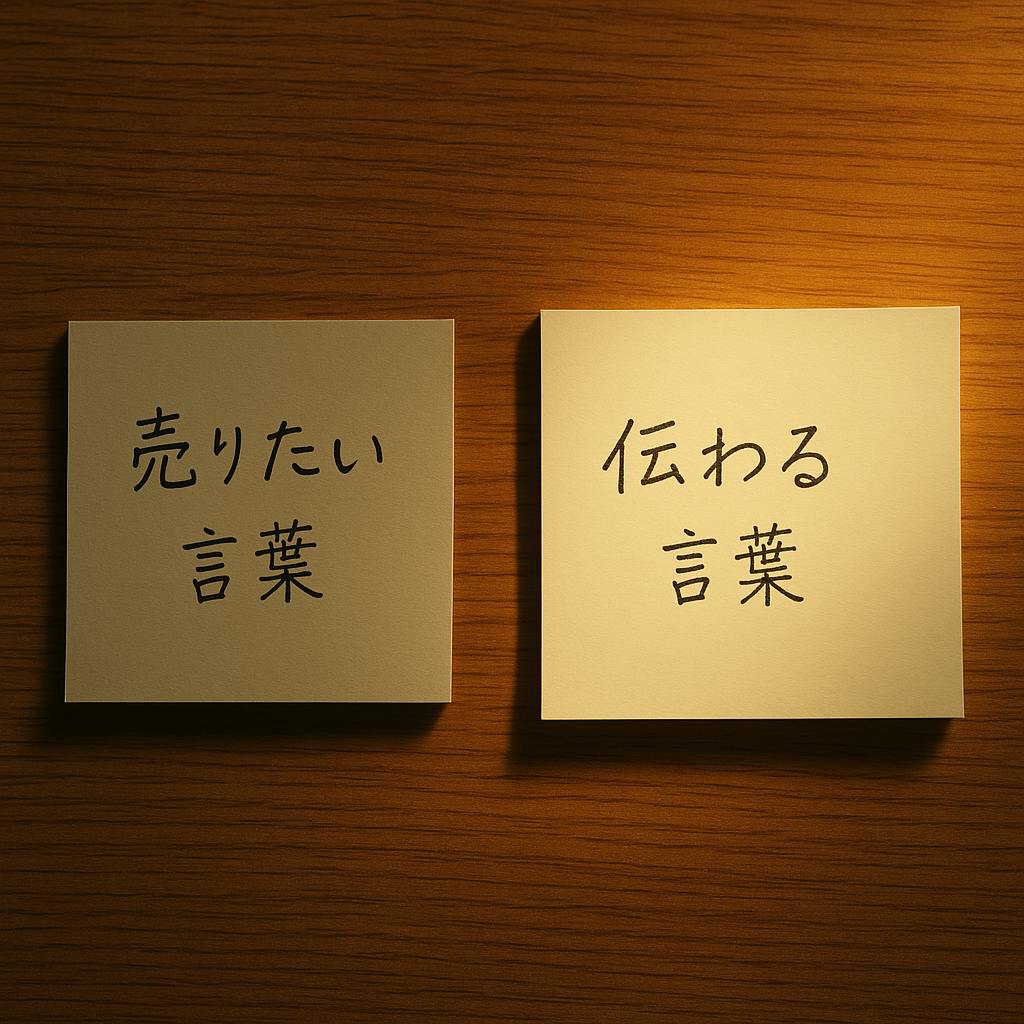 売りたい
言葉
伝わる
言葉